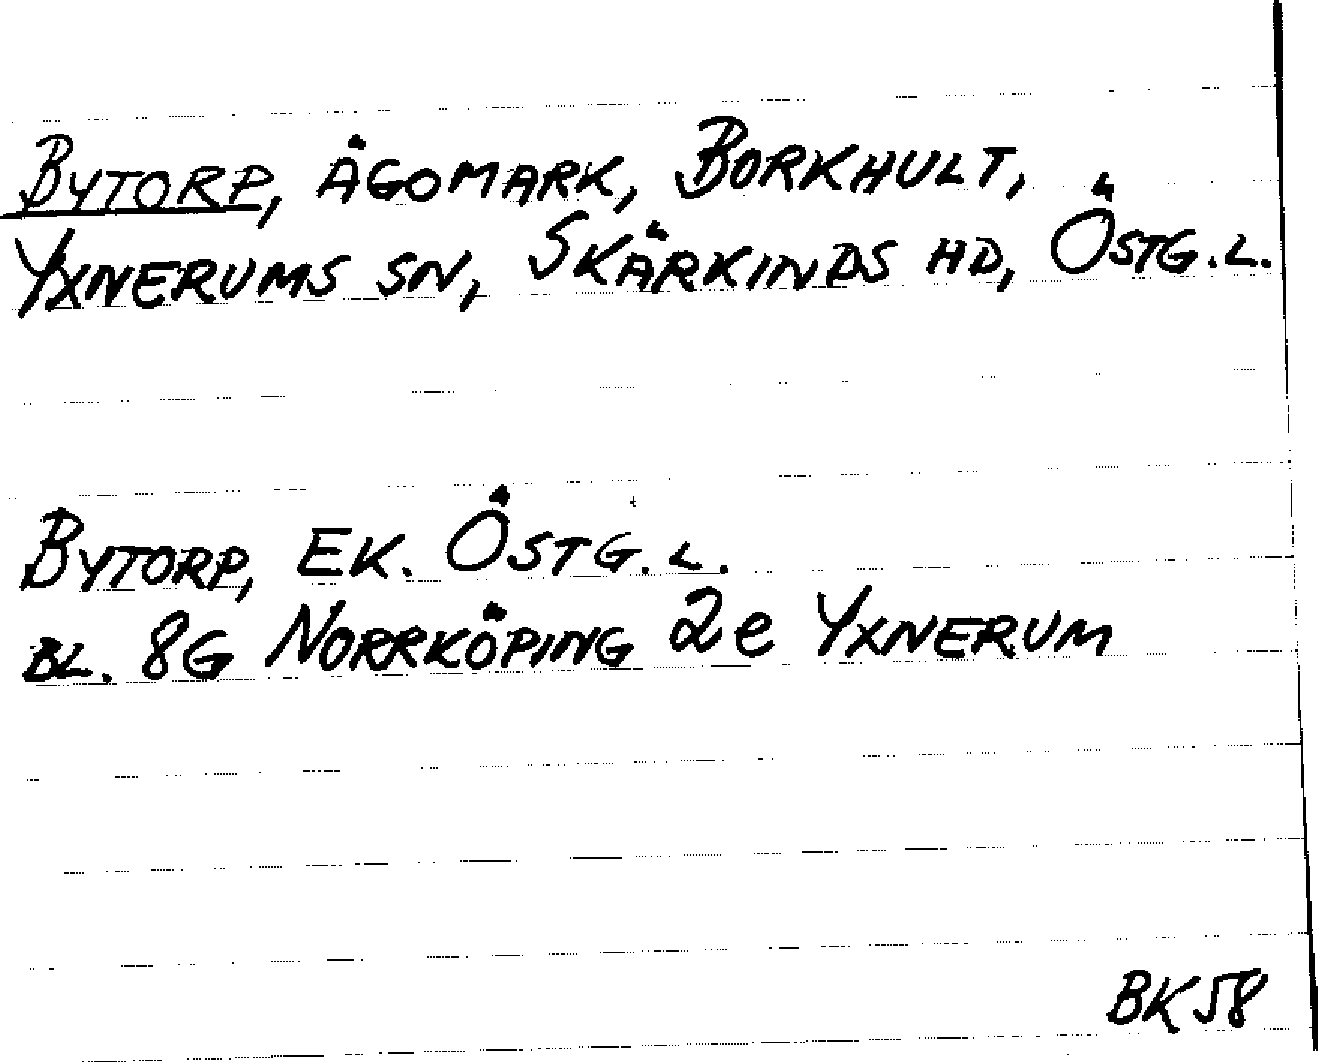 BYTORP, ÄGOMARK, BORKHULT,
YXNERUMS SN, SKÄRKINDS HD, ÖSTG.L.
BYTORP, EK. ÖSTG.L.
BL. 8G NORRKÖPING 2e YXNERUM
BK58